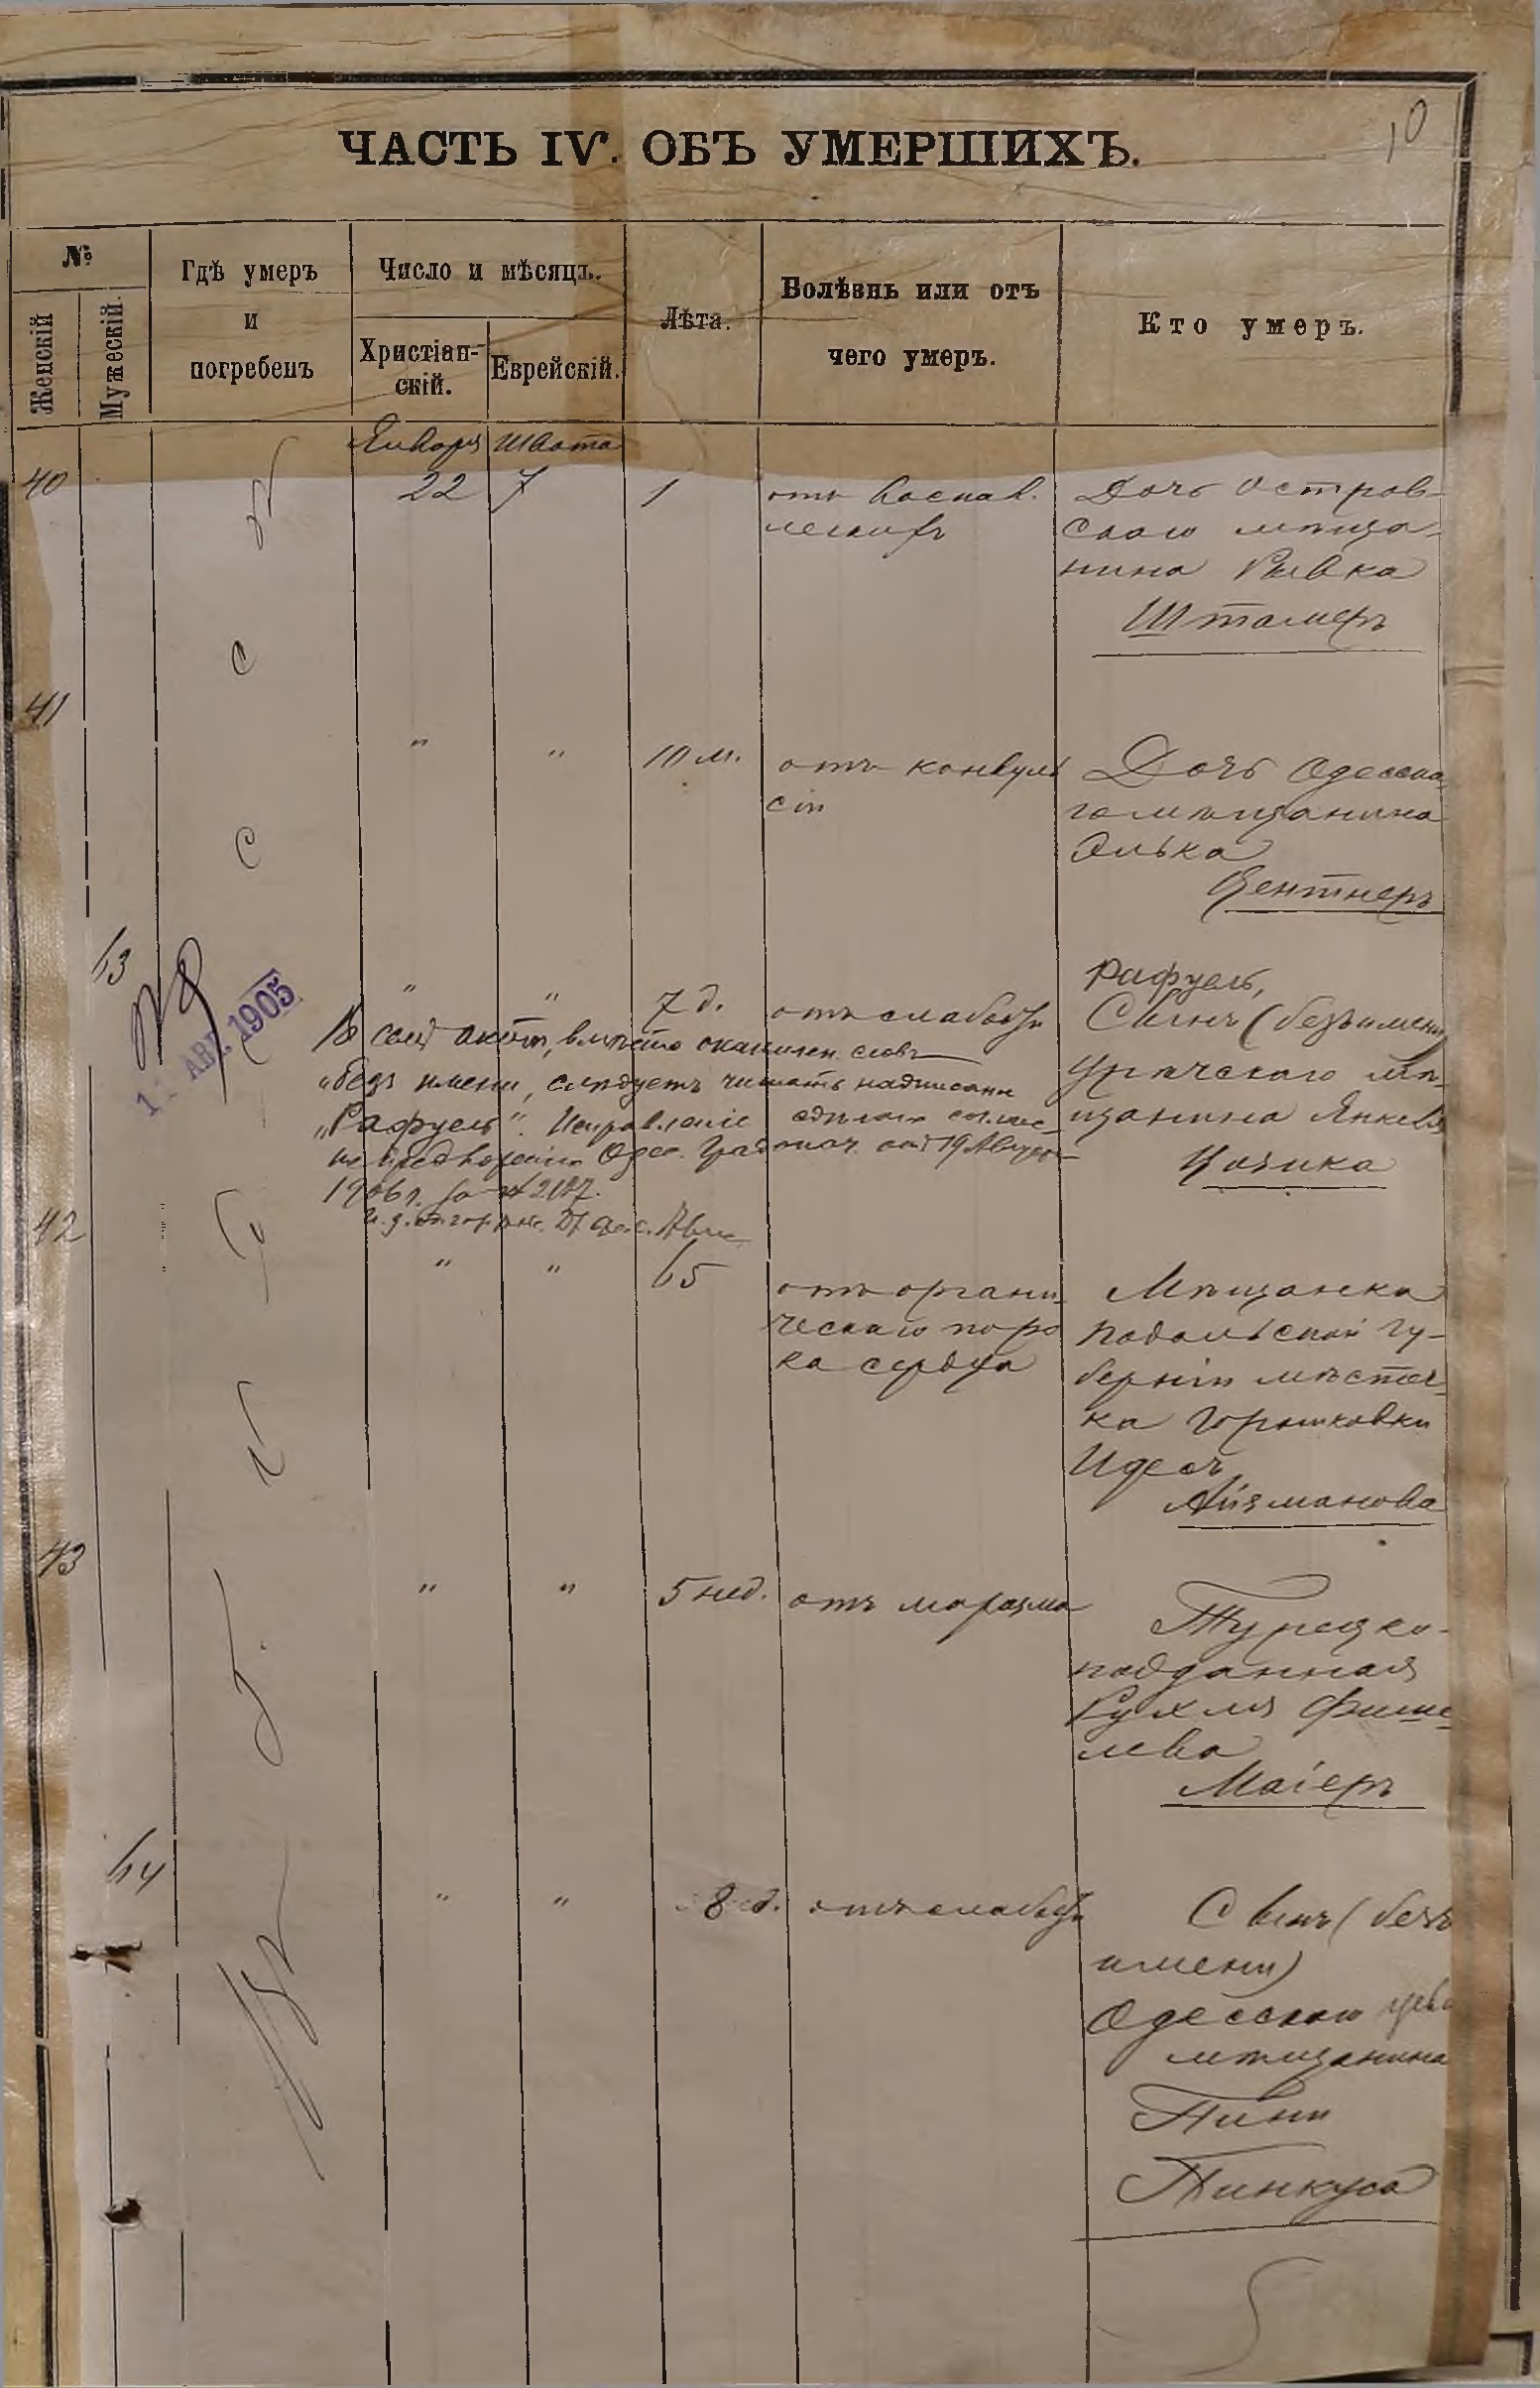 10
ЧАСТЬ IV. ОБЪ УМЕРШИХЪ.
№
Женскій
Мужескій.
Гдѣ умеръ
и
погребенъ
Число и мѣсяцъ.
Христіан-
скій.
Еврейскій.
Лѣта.
Болѣзнь или отъ
чего умеръ.
Кто умеръ.
Января Швата
40 22 7 1 отъ воспал.
легкихъ
Дочь Остров-
скаго мѣща-
нина Рывка
Штамеръ
С
41 " " 10 м. отъ конвуль
сіи
Дочь Одесска
го мѣщанина
Элька
Центнеръ
С
63 " " 7 д. отъ слабости
Рафуель,
Сынъ (безъ имени)
мѣ-
щанина Янкеля
Цозика
1905
АВГ.
Въ семъ актѣ, вмѣсто словъ
"безъ имени, слѣдуетъ читать надписанн
"Рафуель". Исправленіе сдѣлано соглас-
но Одес. Градонач. отъ 19 Августа
1906 г. за № 2187.
42 " " 65 отъ органи-
ческаго поро
ка сердца
Мѣщанка
Подольской гу-
берніи мѣстеч-
ка Горышковки
Идесъ
Айзманова
43 " " 5 нед. отъ маразма
Турецко-
подданная
Рухля Фише-
лева
Маіеръ
64 " " 8 д. отъ слабости
Сынъ (безъ
имени)
Одесскаго
мѣщанина
Пини
Пинкуса